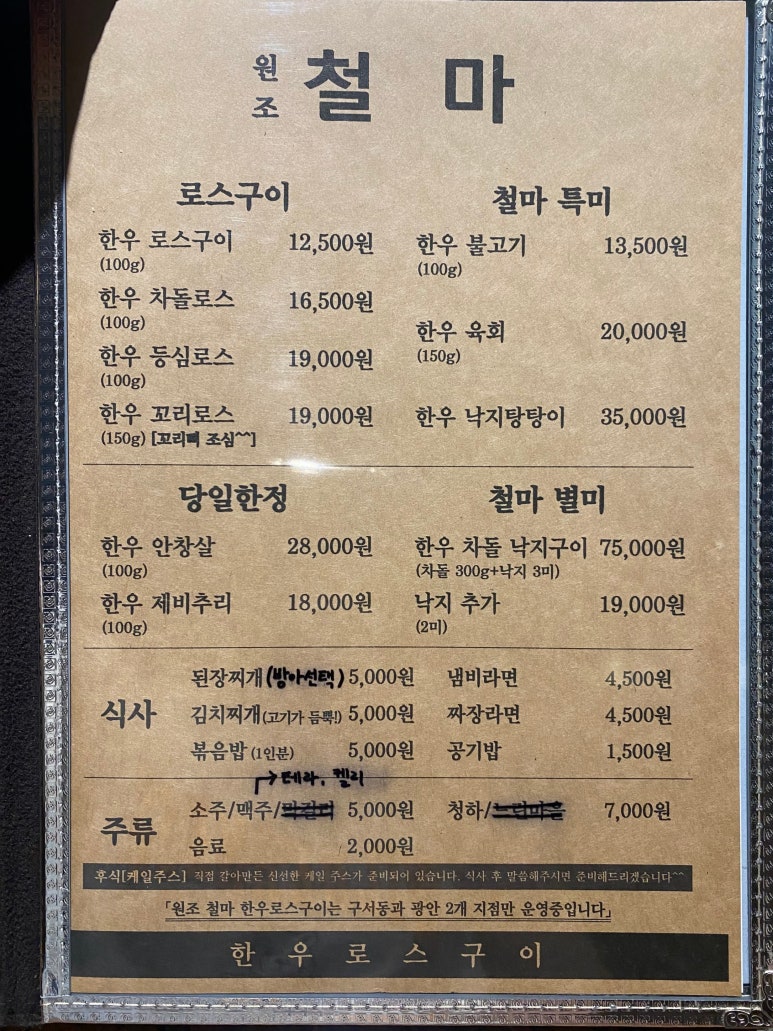 원조 철마
로스구이
한우 로스구이 12,500원
(100g)
한우 차돌로스 16,500원
(100g)
한우 등심로스 19,000원
(100g)
한우 꼬리로스 19,000원
(150g) [꼬리뼈 조심^^]
철마 특미
한우 불고기 13,500원
(100g)
한우 육회 20,000원
(150g)
한우 낙지탕탕이 35,000원
당일한정
한우 안창살 28,000원
(100g)
한우 제비추리 18,000원
(100g)
철마 별미
한우 차돌 낙지구이 75,000원
(차돌 300g+낙지 3미)
낙지 추가 19,000원
(2미)
식사
된장찌개(방아선택) 5,000원 냄비라면 4,500원
김치찌개(고기가 듬뿍!) 5,000원 짜장라면 4,500원
볶음밥(1인분) 5,000원 공기밥 1,500원
주류
테라, 켈리
소주/맥주/막걸리 5,000원 청하/느린마을 7,000원
음료 2,000원
후식[케일주스] 직접 갈아만든 신선한 케일 주스가 준비되어 있습니다. 식사 후 말씀해주시면 준비해드리겠습니다^^
「원조 철마 한우로스구이는 구서동과 광안 2개 지점만 운영중입니다」
한우로스구이